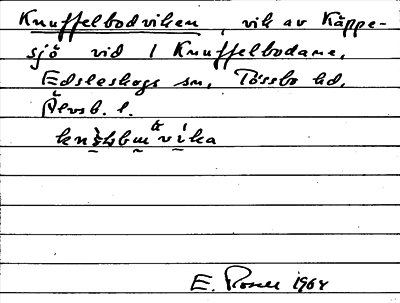 Knuffelbodviken, vik av Käppe-
sjö vid 1 Knuffelbodarne,
Edsleskogs sn, Tössbo hd,
Älvsb. l.
E. Rosell 1964